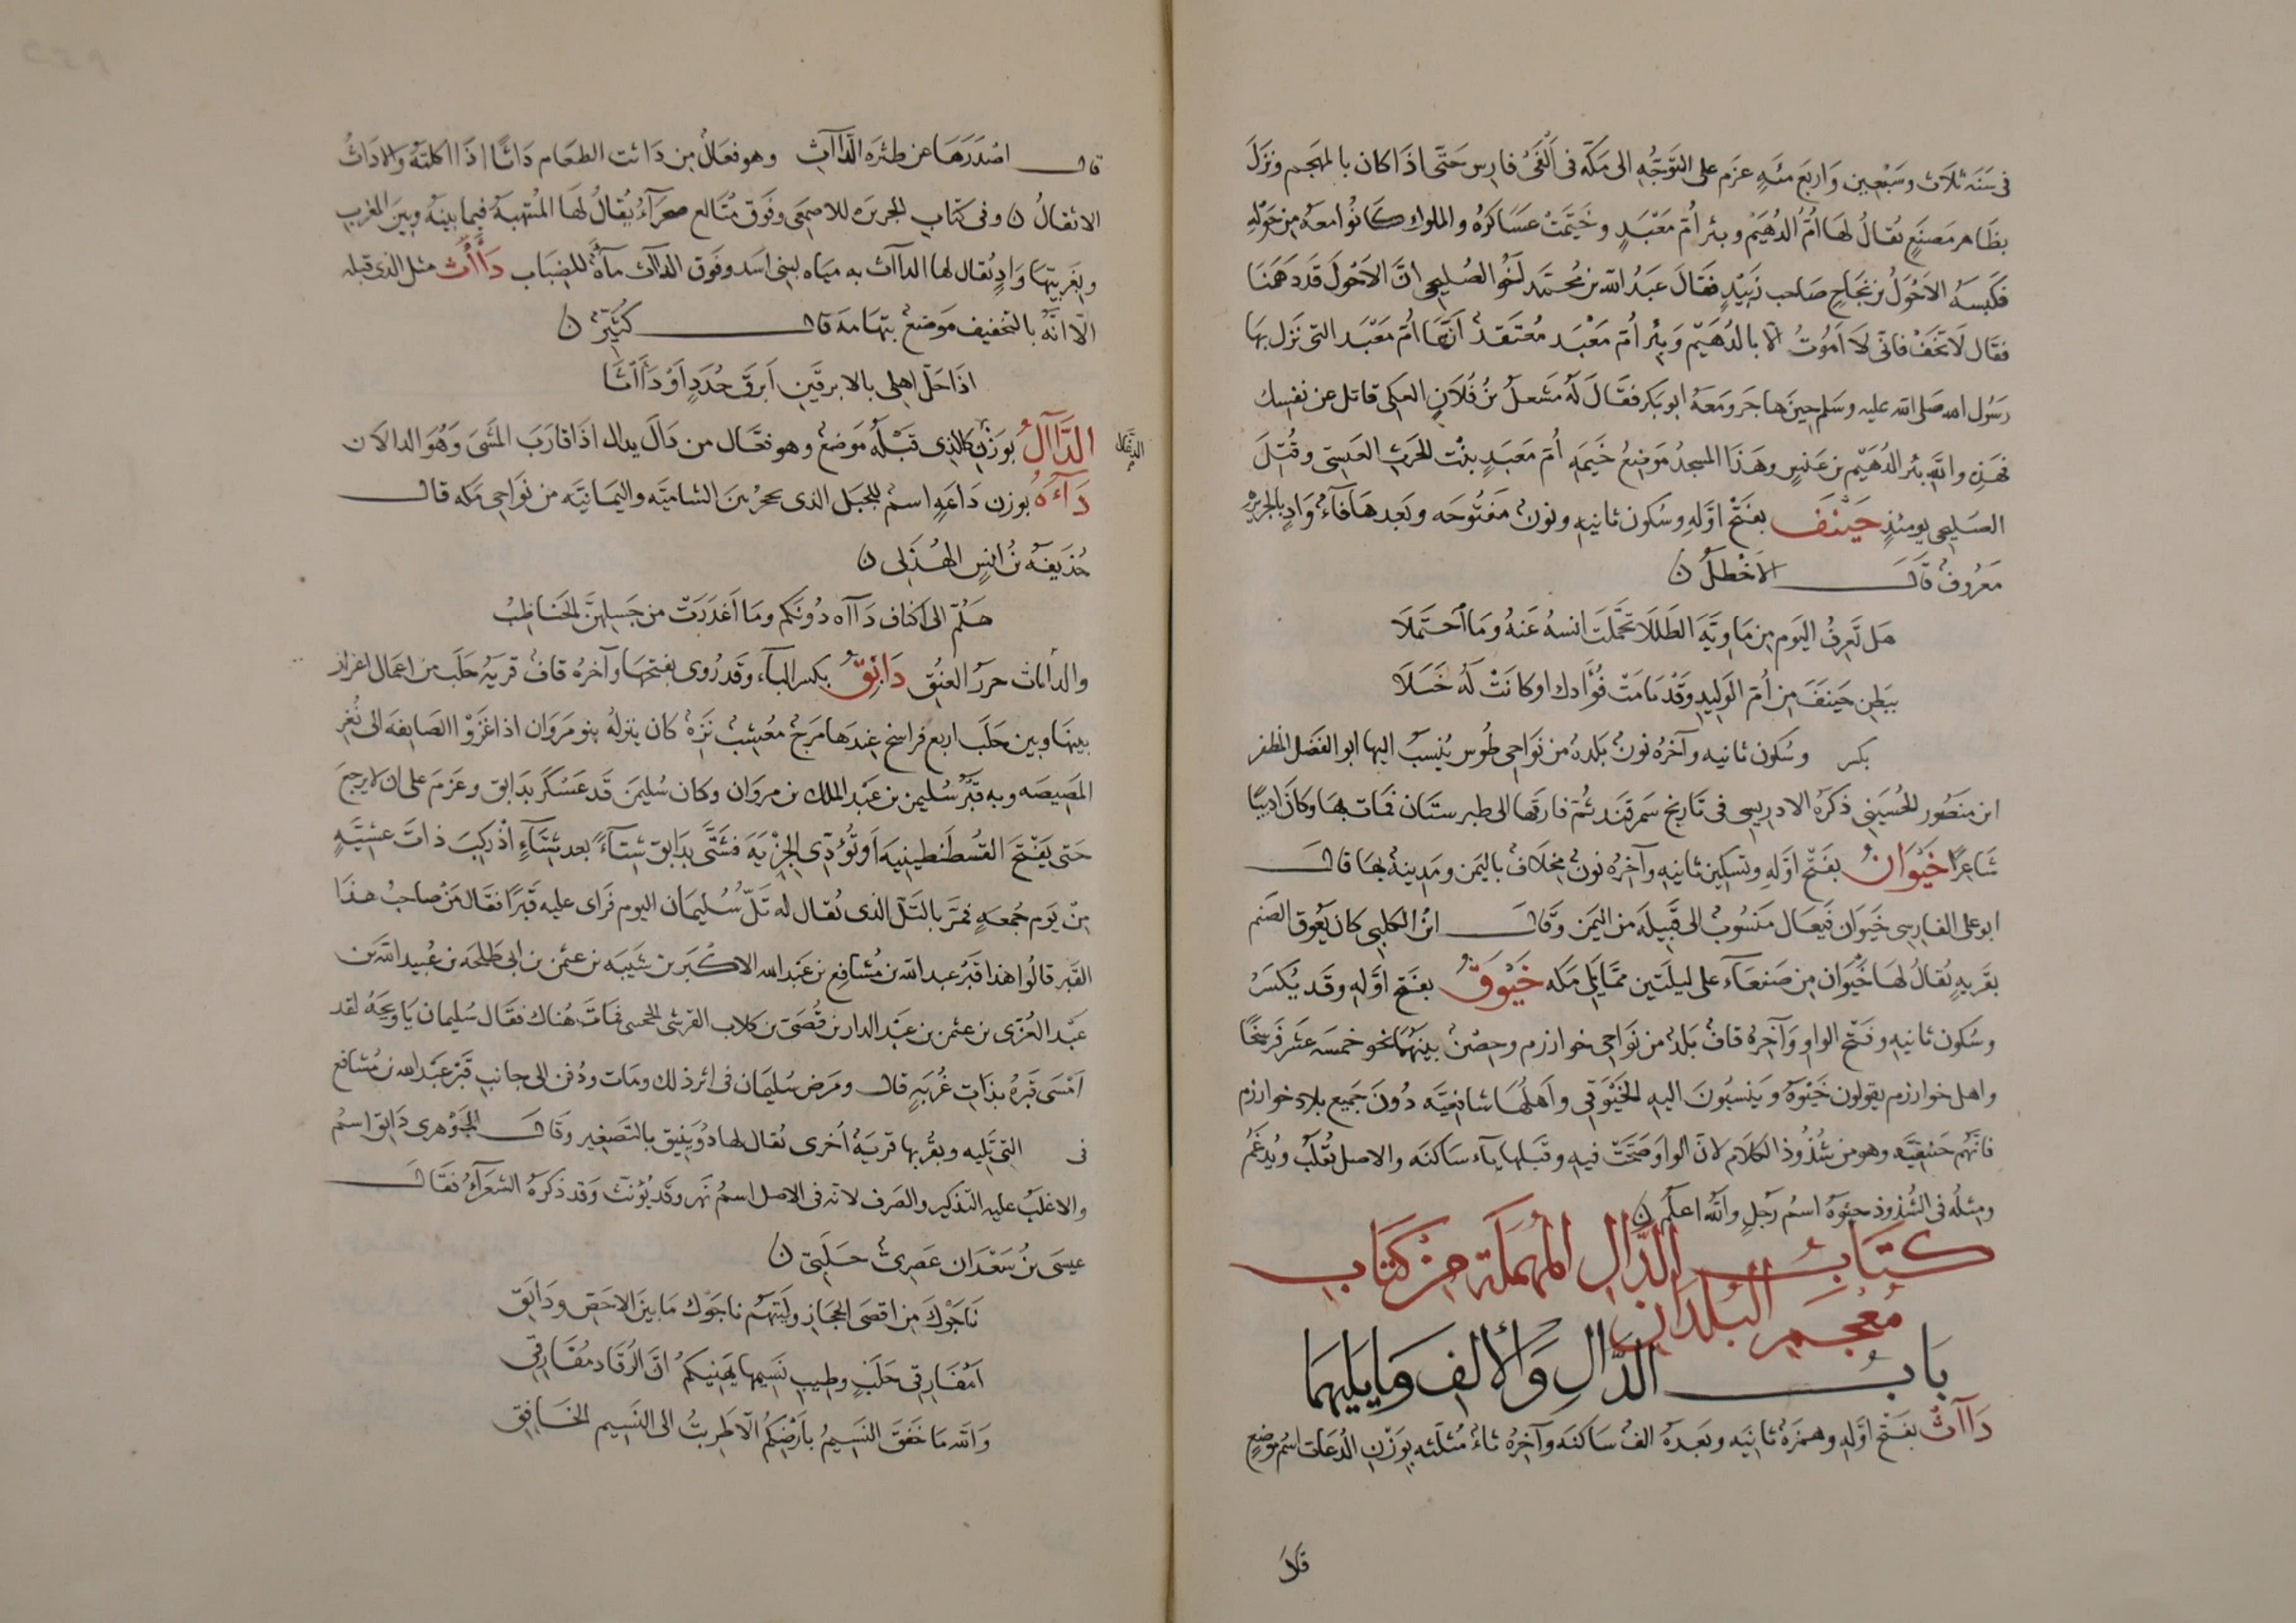 في سَنَة ثلاث وسَبْعين وَاربَع مئةٍ عزَم على التوَجُّه الى مَكّة في اَلْفَىْ فارس حَتّى اذا كان بالمهجم ونزَلَ
بظاهر مَصنَعٍ يُقالُ لهَا اُمُّ الدُهَيْم وبئر اُمّ مَعْبَدٍ وخَيَّمَتْ عسَاكرُه والملوك كانوُا معَهُ من حَوْلهِ
فكبسَهُ الاَحْوَلُ بن نجَاحٍ صَاحب زَبيْدٍ فقَالَ عبَدُ الله بن مُحَمّد اَخُو الصُليحى انّ الاَحْولَ قَد دَهَمنا
فقال لاَ تخَفْ فانى لاَ اَموُتُ الاّ بالدُهَيْم وَبئر اُمّ مَعْبَد مُعتَقدٌ اَنّهَا اُمّ مَعْبَد التى نَزل بها
رَسُول الله صَلى الله عليه وسَلم حينَ هاجَر ومَعَهُ ابو بَكر فقَالَ لَهُ مَشعلُ بنُ فُلاَنٍ العكى قاتل عن نفسك
فهَذِه واللّهِ بئر الدُهَيْم بن عَنسٍ وهَذَا المسجدُ مَوضِعُ خَيمَه اُمّ مَعبَدٍ بنْت الحَرث العَبسى وقُتلَ
الصُليحى يومئذٍ حَيْنَف بفَتْح اوّلهِ وسُكون ثانيهِ ونونٌ مَفْتُوحَه وبَعدهَا فاءٌ وَادٍ بالجزيرة
مَعرُوفٌ قَالَ الاَخْطَلُ ن
هَل تَعِرفُ اليَوم مِن مَاويَّهَ الطَللاَ تحَمَّلَت انسهُ عَنهُ ومَا اَحتَمَلاَ
ببَطنِ حَينَفَ مِن اُمّ الوَليدِ وقَدْ تامَتْ فُؤَادك او كانَتْ لَهُ خَبَلاَ
بكسر وسُكون ثانيه وآخرُه نونٌ بَلدهُ من نَواحى طُوس يُنسَبُ اليها ابو الفَضل المظفر
ابن مَنصُور الحُسَينى ذكَرَهُ الادريسى فى تاريخ سَمرقَند ثُمّ فارَقها الى طبرستان فماتَ بهَا وكانَ اديبًا
شَاعرًا خَيْوَانُ بفَتْح اوّلهِ وتسكين ثانيهِ وآخرُه نونٌ مخْلاَفٌ باليَمن ومَدينهٌ بهَا قال
ابو على الفارسى خَيوَان فَيعَال مَنسُوبٌ الى قَبيلَه من اليَمن وَقَالَ ابنُ الكلبى كان يَعُوق الصَنم
بقَريهٍ يُقالُ لهَا خَيْوَان مِن صَنعَآء على ليلَتين ممّا يَلى مَكه خَيْوَقُ بفَتح اوّلهِ وقَد يُكسَرُ
وسُكون ثانيهِ وفَتْح الواو وَآخِرهُ قافٌ بَلدٌ من نَواحى خوارزم وحِصْنٌ بينَهُمَا نحو خمسَه عَشر فَرسخًا
واهل خوارزم يقولون خَيْوَهَ وَينسبُون اليهِ الخَيْوَقى واَهلُهَا شافعيَّه دُونَ جَميع بلاد خوارزم
فانّهُم حَنَفيَّه وهو من شُذُوذ الكلاَم لاَنّ الواوَ صَحَّتْ فيهِ وقبَلها يآء سَاكنَه والاصل تُقلَبُ ويُدغَمُ
ومثلُه فى الشُذوذ حيْوَهُ اسمُ رَجلٍ واللّهُ اعلَم ن
كتَابُ الدَّال المهُمَلَة من كتَاب
مُعجَم البُلدَان
بَابُ الدَّالِ وَالأَلِفِ وَمَا يَليهِمَا
دَاآثُ بفَتْح اوّلهِ وهمزَهٌ ثانيَه وبَعدهُ الفٌ سَاكنَه وآخرُه ثاءٌ مُثلثه بوَزْن الدعَاث اسُم مَوضِع
قال
قال اصْدَرَهَا عن طثرَه الدَّاآثِ وهو فعَالٌ من دَائت الطعَام دَاثًا اذَا اكلتَهُ وَالادَاثُ
الاثقالُ ن وفى كتَابِ الجزيرَه للاصمَعى وفَوق مُتَالع صحرَآءُ يُقالُ لهَا المُنتهبَهُ فيمَا بينَهُ وبيَن المغرب
وبغَربيّها وَادٍ يُقال لها الداآث به ميَاه لبنى اسَد وفَوق الداآث مآءٌ للضِبَاب دَأَّثُ مثل الذى قبله
الاّ انّهُ بالتخفيف مَوضعٌ بتهَامَه قال كُثيَّرٌ ن
اذَا حَلّ اهلى بالابرقَين اَبرَقَ جُدَدٍ اَوْ دَاَاثَا
الدَّاآلُ بوَزْن كالذى قَبْلَه مَوضعٌ وهو فعَّال من دَالَ يدال اذا قارَبَ المَشىَ وَهُوَ الدالاَن
الدءّال
دَآءَهُ بوزن دَاعَهِ اسمٌ للجَبَل الذى يحجُز بينَ الشاميّه واليَمانيَّه من نَواحى مَكه قال
حُذَيفَه بنُ انسٍ الهُذَلى ن
هَلُمّ الى اكناف دَاآه دُونَكم ومَا اَغدَرَتْ من خَسلهنَّ الحَناظبُ
والدأاث حررَ العنيق دَابِقُ بكسر البآء وقد رُوى بفتحهَا وآخرُه قافٌ قريَهُ حَلَب من اعمَال اعزاز
بينهَا وبين حَلَب اربع فراسخ عندَهَا مَرجٌ مُعْشِبٌ نَزهٌ كان ينزلُه بنو مَروَان اذا غَزَوْا الصَايفَه الى ثغر
المَصِيصَه وبه قَبْر سُليمن بن عَبْد الملك بن مروَان وكان سُليمَن قَد عَسْكَر بدَابق وعزَمَ على ان لايرجعَ
حَتى يَفْتَح القُسطَنطينيه اَو تُؤدّى الجِزْيَهَ فشَتَّى بدَابق شتآءً بعد شتآءٍ اذْ ركِبَ ذاتَ عشيَّهٍ
مِنْ يَوم جُمعهٍ فمَرَّ بالتَلّ الذى يُقال له تَلّ سُليمَان اليوم فَراى عليه قَبْرًا فقَال مَنْ صاحبُ هذا
القَبر قالُوا هذا قَبْرُ عبد اللّه بن مُشافع بن عَبْد الله الاكبَر بن شَيبَه بن عثمن بن ابى طَلحَه بن عُبيد الله بن
عَبْد العُزّى بن عثمن بن عَبْد الدار بن قُصَىّ بن كلاب القرشى الحمسى فمَاتَ هُناك فقَال سُليمان يَا ويحَهُ لقد
اَمْسَى قَبرُهُ بذَاتِ غُربَهٍ قال ومَرضَ سُليمَان فى اثر ذلك ومَات ودُفن الى جانبِ قَبْر عَبْد الله بن مُشافع
فى التى تَليه وبقُربها قريَهٌ اُخرى يُقال لها دُوَيبق بالتَصغير وقَالَ الجَوْهرى دَابق اسمُ
والاغلَبُ عليه التذكير والصَرف لانّه فى الاصل اسمُ نَهر وقَد يُؤنث وَقد ذكرَهُ الشعَرآءُ فقَالَ
عيسَى بنُ سَعْدَان عَصرىٌّ حَلَبىّ ن
نَاجَوْكَ من اقصَى الحجَاز ولَيتَهُم ناجَوْكَ مَا بيَن الاحَصّ ودَابَقِ
اَمُفَارِقى حَلَبٍ وطيب نَسيمهَا يهَنيكُم اَنّ الرُقَاد مُفَارقى
وَاللّه مَا خفَقَ النَسيمُ باَرْضكُم الاّ طَربتُ الى النَسيم الخَافِقِ